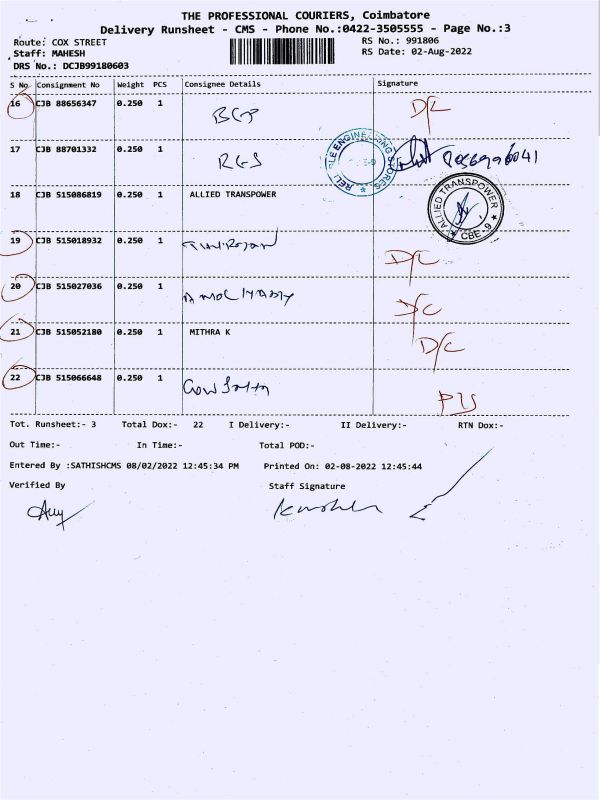 THE PROFESSIONAL COURIERS, Coimbatore
Delivery Runsheet - CMS - Phone No.:0422-3505555 - Page No.:3
Route: COX STREET RS No.: 991806
Staff: MAHESH RS Date: 02-Aug-2022
DRS No.: DCJB99180603
S No. Consignment No Weight PCS Consignee Details Signature
16 CJB 88656347 0.250 1 D/L
17 CJB 88701332 0.250 1 RGS
RELI LE ENGINEERING STORES
18 CJB 515086819 0.250 1 ALLIED TRANSPOWER
ALLIED TRANSPOWER ★ CBE-9 ★
19 CJB 515018932 0.250 1 D/L
20 CJB 515027036 0.250 1 D/C
21 CJB 515052180 0.250 1 MITHRA K D/C
22 CJB 515066648 0.250 1
Tot. Runsheet:- 3 Total Dox:- 22 I Delivery:- II Delivery:- RTN Dox:-
Out Time:- In Time:- Total POD:-
Entered By :SATHISHCMS 08/02/2022 12:45:34 PM Printed On: 02-08-2022 12:45:44
Verified By Staff Signature